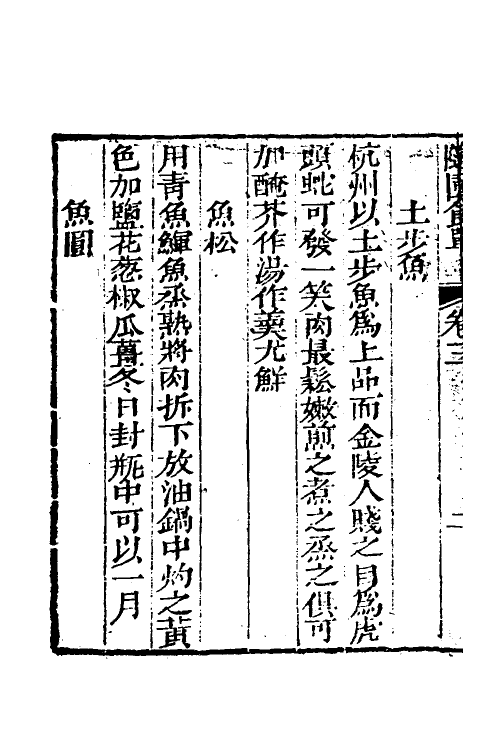 隨園食單 卷三 二
土步魚
杭州以土步魚為上品而金陵人賤之目為虎
頭蛇可發一笑肉最鬆嫩煎之煮之蒸之俱可
加醃芥作湯作羹尤鮮
魚松
用青魚鯶魚蒸熟將肉拆下放油鍋中灼之黃
色加鹽花葱椒瓜薑冬日封瓶中可以一月
魚圓